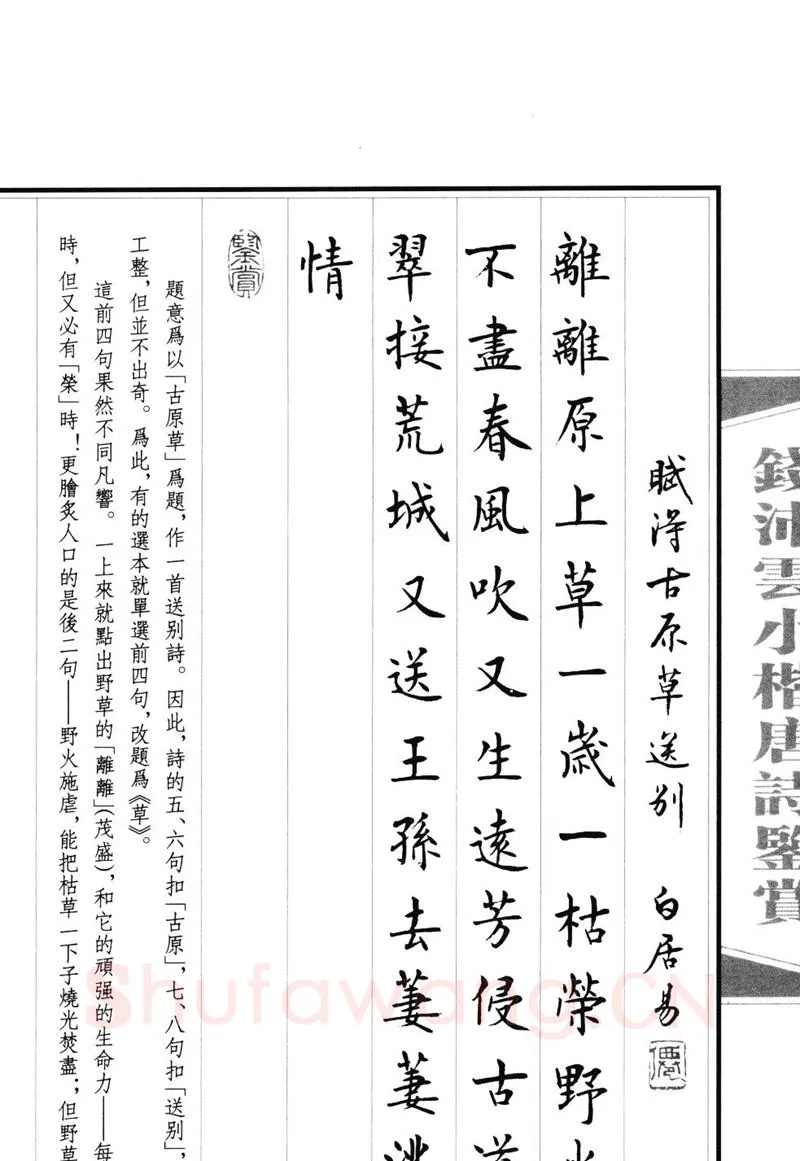 錢沛雲小楷唐詩鑒賞
賦得古原草送别 白居易
離離原上草一歲一枯榮野火
不盡春風吹又生遠芳侵古道
翠接荒城又送王孫去萋萋滿
情
鑒賞
題意爲以「古原草」爲題，作一首送别詩。因此，詩的五、六句扣「古原」，七、八句扣「送别」，
工整，但並不出奇。爲此，有的選本就單選前四句，改題爲《草》。
這前四句果然不同凡響。一上來就點出野草的「離離」（茂盛），和它的頑强的生命力——每
時，但又必有「榮」時！更膾炙人口的是後二句——野火施虐，能把枯草一下子燒光焚盡；但野草
Shufawang.CN